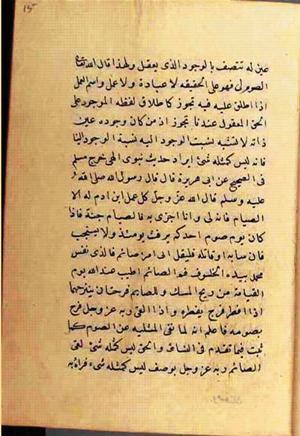 عين له تتصف بالوجود الذى يعقل ولهذا قال الله تعالى
الصوم لى فهو على الحقيقة لا عبادة ولا عمل واسم العمل
اذا اطلق عليه فيه تجوز كاطلاق لفظة الموجود على
الحق المعقول عندنا تجوز اذ من كان وجوده عين
ذاته لا تشبه نسبت الوجود اليه نسبة الوجود الينا
فانه ليس كمثله شئ ايراد حديث نبوى الهى خرج مسلم
فى الصحيح عن ابى هريرة قال قال رسول الله صلى الله
عليه وسلم قال الله عز وجل كل عمل ابن ادم له الا
الصيام فانه لى وانا اجزى به والصيام جنة فاذا
كان يوم صوم احدكم يرفث يومئذ ولا يسخب
فان سابه او قاتله فليقل انى امرؤ صائم فالذى نفس
محمد بيده الخلوف فم الصائم اطيب عند الله يوم
القيامة من ريح المسك وللصايم فرحتان يفرحهما
اذا افطر فرح بفطره واذا لقى ربه عز وجل فرح
بصومه فاعلم انه لما نفى المثلية عن الصوم كما
ثبت فيما تقدم فى النسائى والحق ليس كمثله شئ لقى
الصائم ربه عز وجل بوصف ليس كمثله شئ فراه به